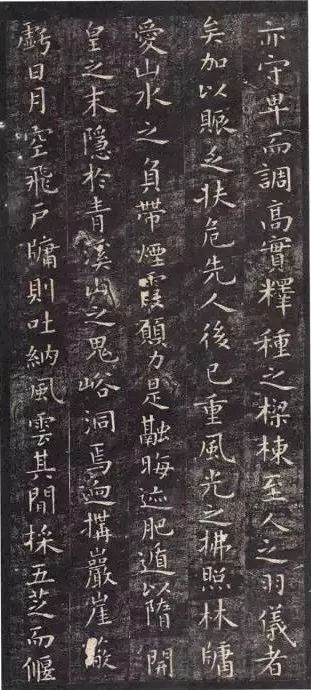 亦守卑而調高實釋種之樑棟至人之羽儀者
矣加以賑乏扶危先人後已重風光之拂照林牗
愛山水之負帶煙霞願力是融晦迹肥遁以隋開
皇之末隱於青溪山之鬼峪洞焉迺搆巖崖蔽
虧日月空飛戶牗則吐納風雲其間採五芝而偃